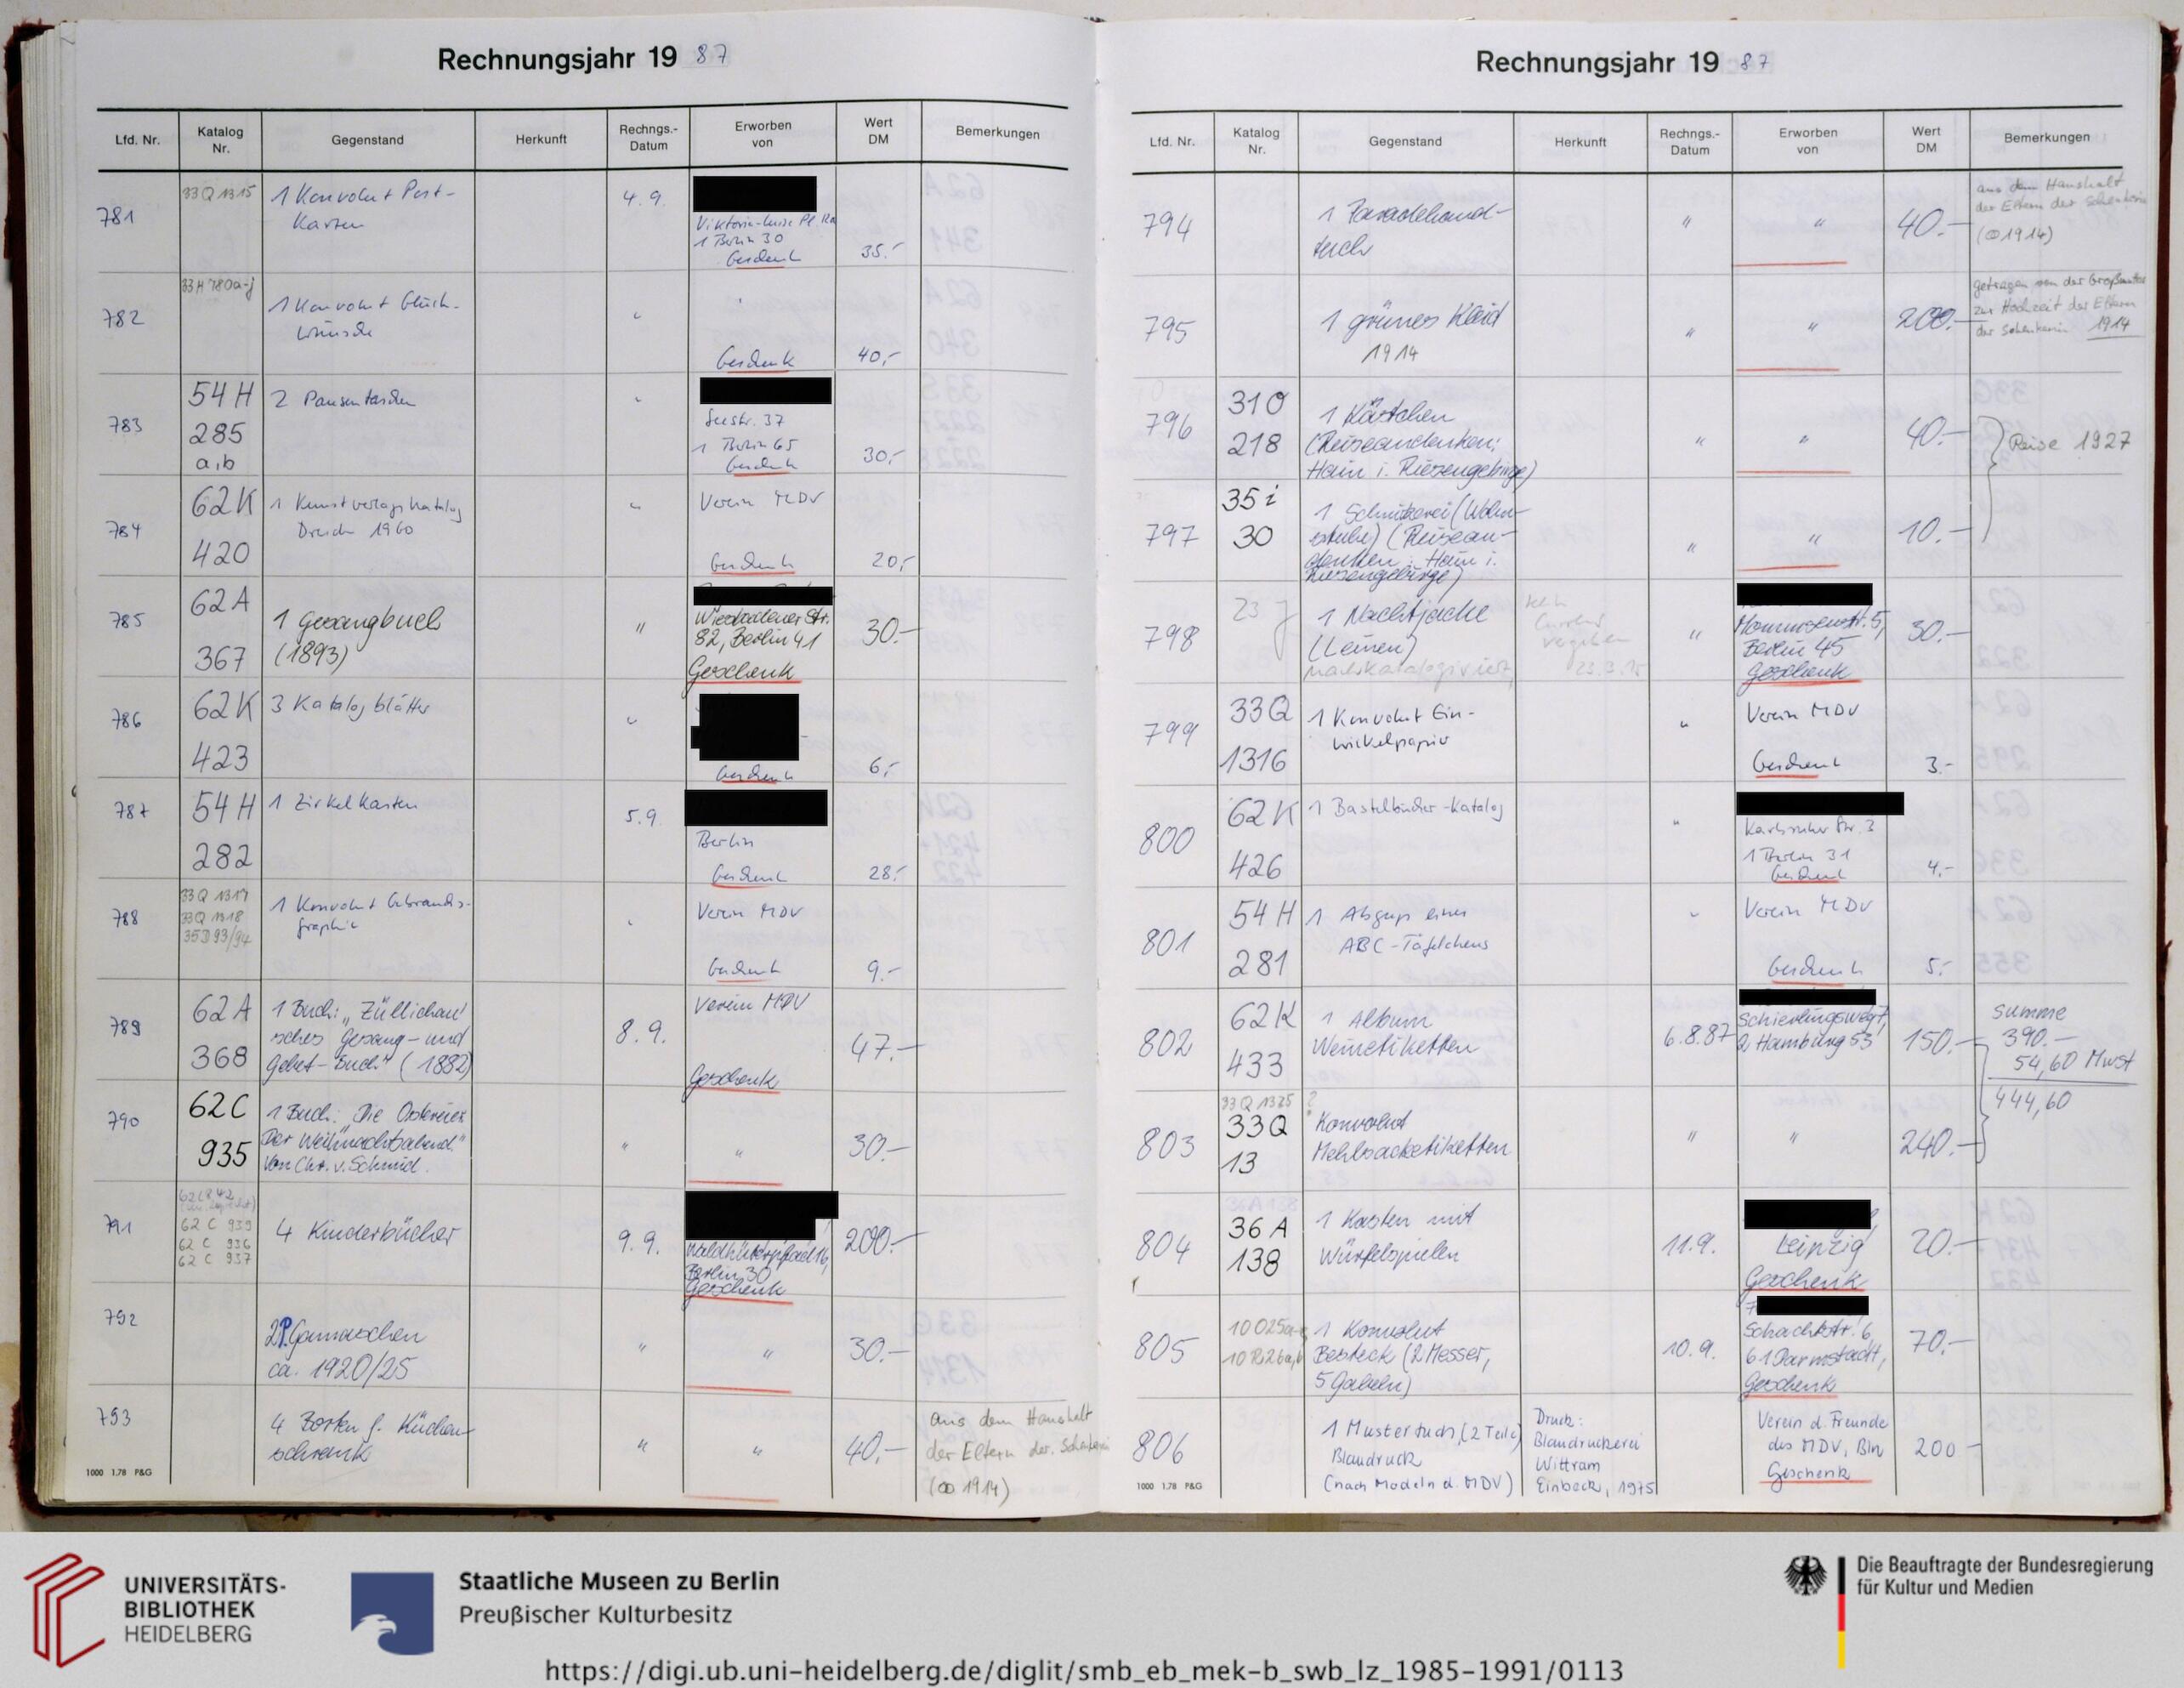 Rechnungsjahr 19 87
Lfd. Nr. Katalog Nr. Gegenstand Herkunft Rechngs.-Datum Erworben von Wert DM Bemerkungen
781 33 Q 1315 1 Konvolut Post-
karten 4.9.
1 Berlin 30
Geschenk 35.-
782 33 H 780a-j 1 Konvolut Glück-
wünsche "
Geschenk 40,-
783 54 H 2 Pausentaschen "
285 Seestr. 37
a,b 1 Berlin 65
Geschenk 30,-
784 62 K 1 Kunstverlagskatalog " Verein MDV
Dresden 1960
420 Geschenk 20,-
785 62 A 1 Gesangbuch " Wiesbadener Str.
367 (1893) 82, Berlin 41 30.-
Geschenk
786 62 K 3 Katalogblätter "
423 Geschenk 6,-
787 54 H 1 Zirkelkasten 5.9.
282 Berlin
Geschenk 28.-
788 33 Q 1317 1 Konvolut Gebrauchs-
33 Q 1318 graphik " Verein MDV
35 D 93/94
Geschenk 9.-
789 62 A 1 Buch: „Züllichau
368 sches Gesang- und 8.9. Verein MDV 47.-
Gebet-Buch" (1882)
Geschenk
790 62 C 1 Buch: Die Ostereier
935 Der Weihnachtsabend." " " 30.-
Von Chr. v. Schmid.
791 62 C 939
62 C 936 4 Kinderbücher 9.9. 200.-
62 C 937
Berlin 30
Geschenk
792 2 P. Gamaschen
ca. 1920/25 " " 30.-
793 4 Borten f. Küchen-
schrank " " 40.- aus dem Haushalt
der Eltern der Schenkerin
(∞ 1914)
1000 1.78 P&G
Rechnungsjahr 19 87
Lfd. Nr. Katalog Nr. Gegenstand Herkunft Rechngs.-Datum Erworben von Wert DM Bemerkungen
794 1 Paradehand-
tuch " " 40.- aus dem Haushalt
der Eltern der Schenkerin
(∞ 1914)
795 1 grünes Kleid
1914 " " 200.- getragen von der Großmutter
zur Hochzeit der Eltern
der Schenkerin 1914
796 310 1 Kästchen
218 (Reiseandenken: " " 40.- Reise 1927
Hain i. Riesengebirge)
797 35 i 1 Schnitzerei (Wohn-
30 stube) (Reisean-
denken: Hain i. " " 10.-
Riesengebirge)
798 23 J 1 Nachtjacke
(Leinen) " 30.-
nachkatalogisiert, 23.3.15
Mommsenstr. 5,
Berlin 45
Geschenk
799 33 Q 1 Konvolut Ein-
wickelpapier " Verein MDV
1316 Geschenk 3.-
800 62 K 1 Bastelbücher-Katalog "
Karlsruher Str. 3
426 1 Berlin 31
Geschenk 4.-
801 54 H 1 Abguss eines " Verein MDV
ABC-Täfelchens
281 Geschenk 5.-
802 62 K 1 Album
433 Weinetiketten 6.8.87 2 Hamburg 53 150.-
Summe
390.-
54,60 Mwst
444,60
803 33 Q 1325 ?
33 Q Konvolut
13 Mehlsacketiketten " " 240.-
804 36 A 1 Kasten mit
138 Würfelspielen 11.9. Leipzig 20.-
Geschenk
805 1 Konvolut
Besteck (2 Messer, 10.9. 70.-
5 Gabeln)
61 Darmstadt,
Geschenk
806 1 Mustertuch, (2 Teile)
Blaudruck
(nach Modeln d. MDV)
Druck:
Blaudruckerei
Wittram
Einbeck, 1975
Verein d. Freunde
des MDV, Bln 200 -
Geschenk
1000 1.78 P&G
UNIVERSITÄTS-
BIBLIOTHEK
HEIDELBERG
Staatliche Museen zu Berlin
Preußischer Kulturbesitz
Die Beauftragte der Bundesregierung
für Kultur und Medien
https://digi.ub.uni-heidelberg.de/diglit/smb_eb_mek-b_swb_lz_1985-1991/0113